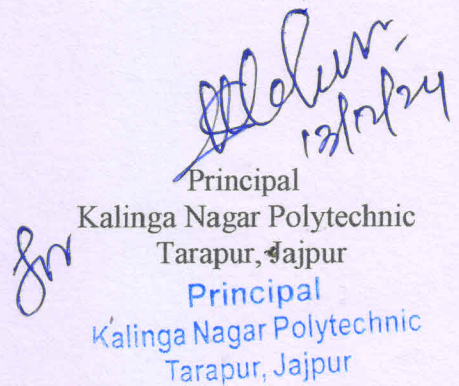 13/12/24
Principal
Kalinga Nagar Polytechnic
Tarapur, Jajpur
Principal
Kalinga Nagar Polytechnic
Tarapur, Jajpur